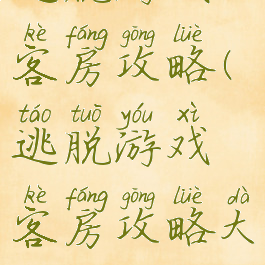 kè fáng gōng lüè
客房攻略(
táo tuō yóu xì
逃脱游戏
kè fáng gōng lüè dà
客房攻略大